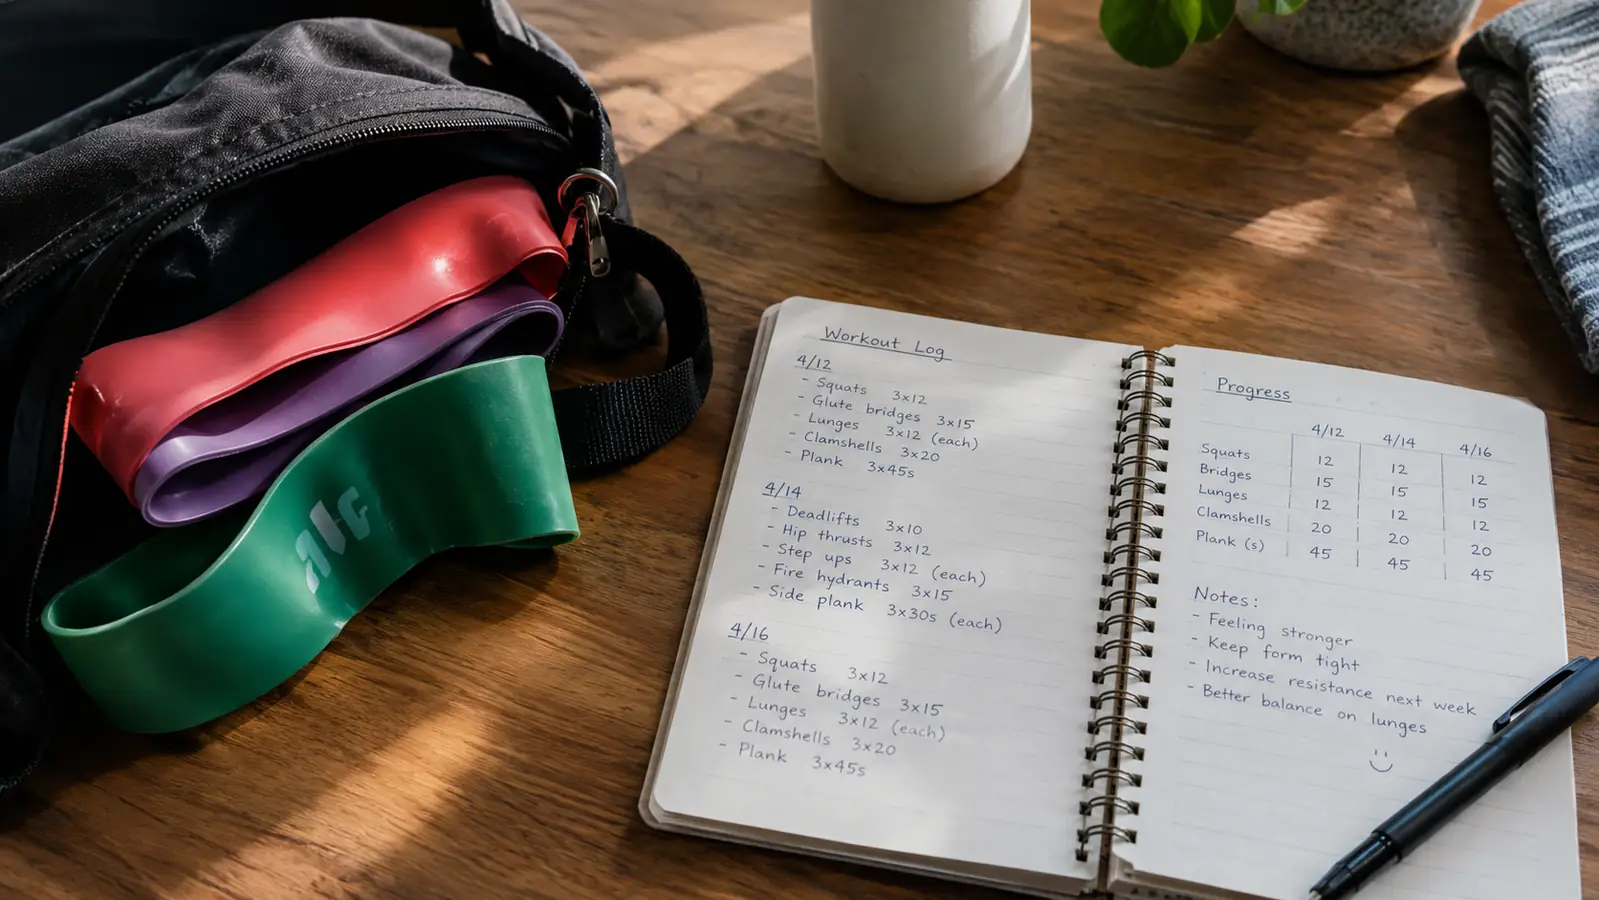 Workout Log
4/12
- Squats 3x12
- Glute bridges 3x15
- Lunges 3x12 (each)
- Clamshells 3x20
- Plank 3x45s
4/14
- Deadlifts 3x10
- Hip thrusts 3x12
- Step ups 3x12 (each)
- Fire hydrants 3x15
- Side plank 3x30s (each)
4/16
- Squats 3x12
- Glute bridges 3x15
- Lunges 3x12 (each)
- Clamshells 3x20
- Plank 3x45s
Progress
4/12 4/14 4/16
Squats 12 12 12
Bridges 15 15 15
Lunges 12 12 12
Clamshells 20 20 20
Plank (s) 45 45 45
Notes:
- Feeling stronger
- Keep form tight
- Increase resistance next week
- Better balance on lunges